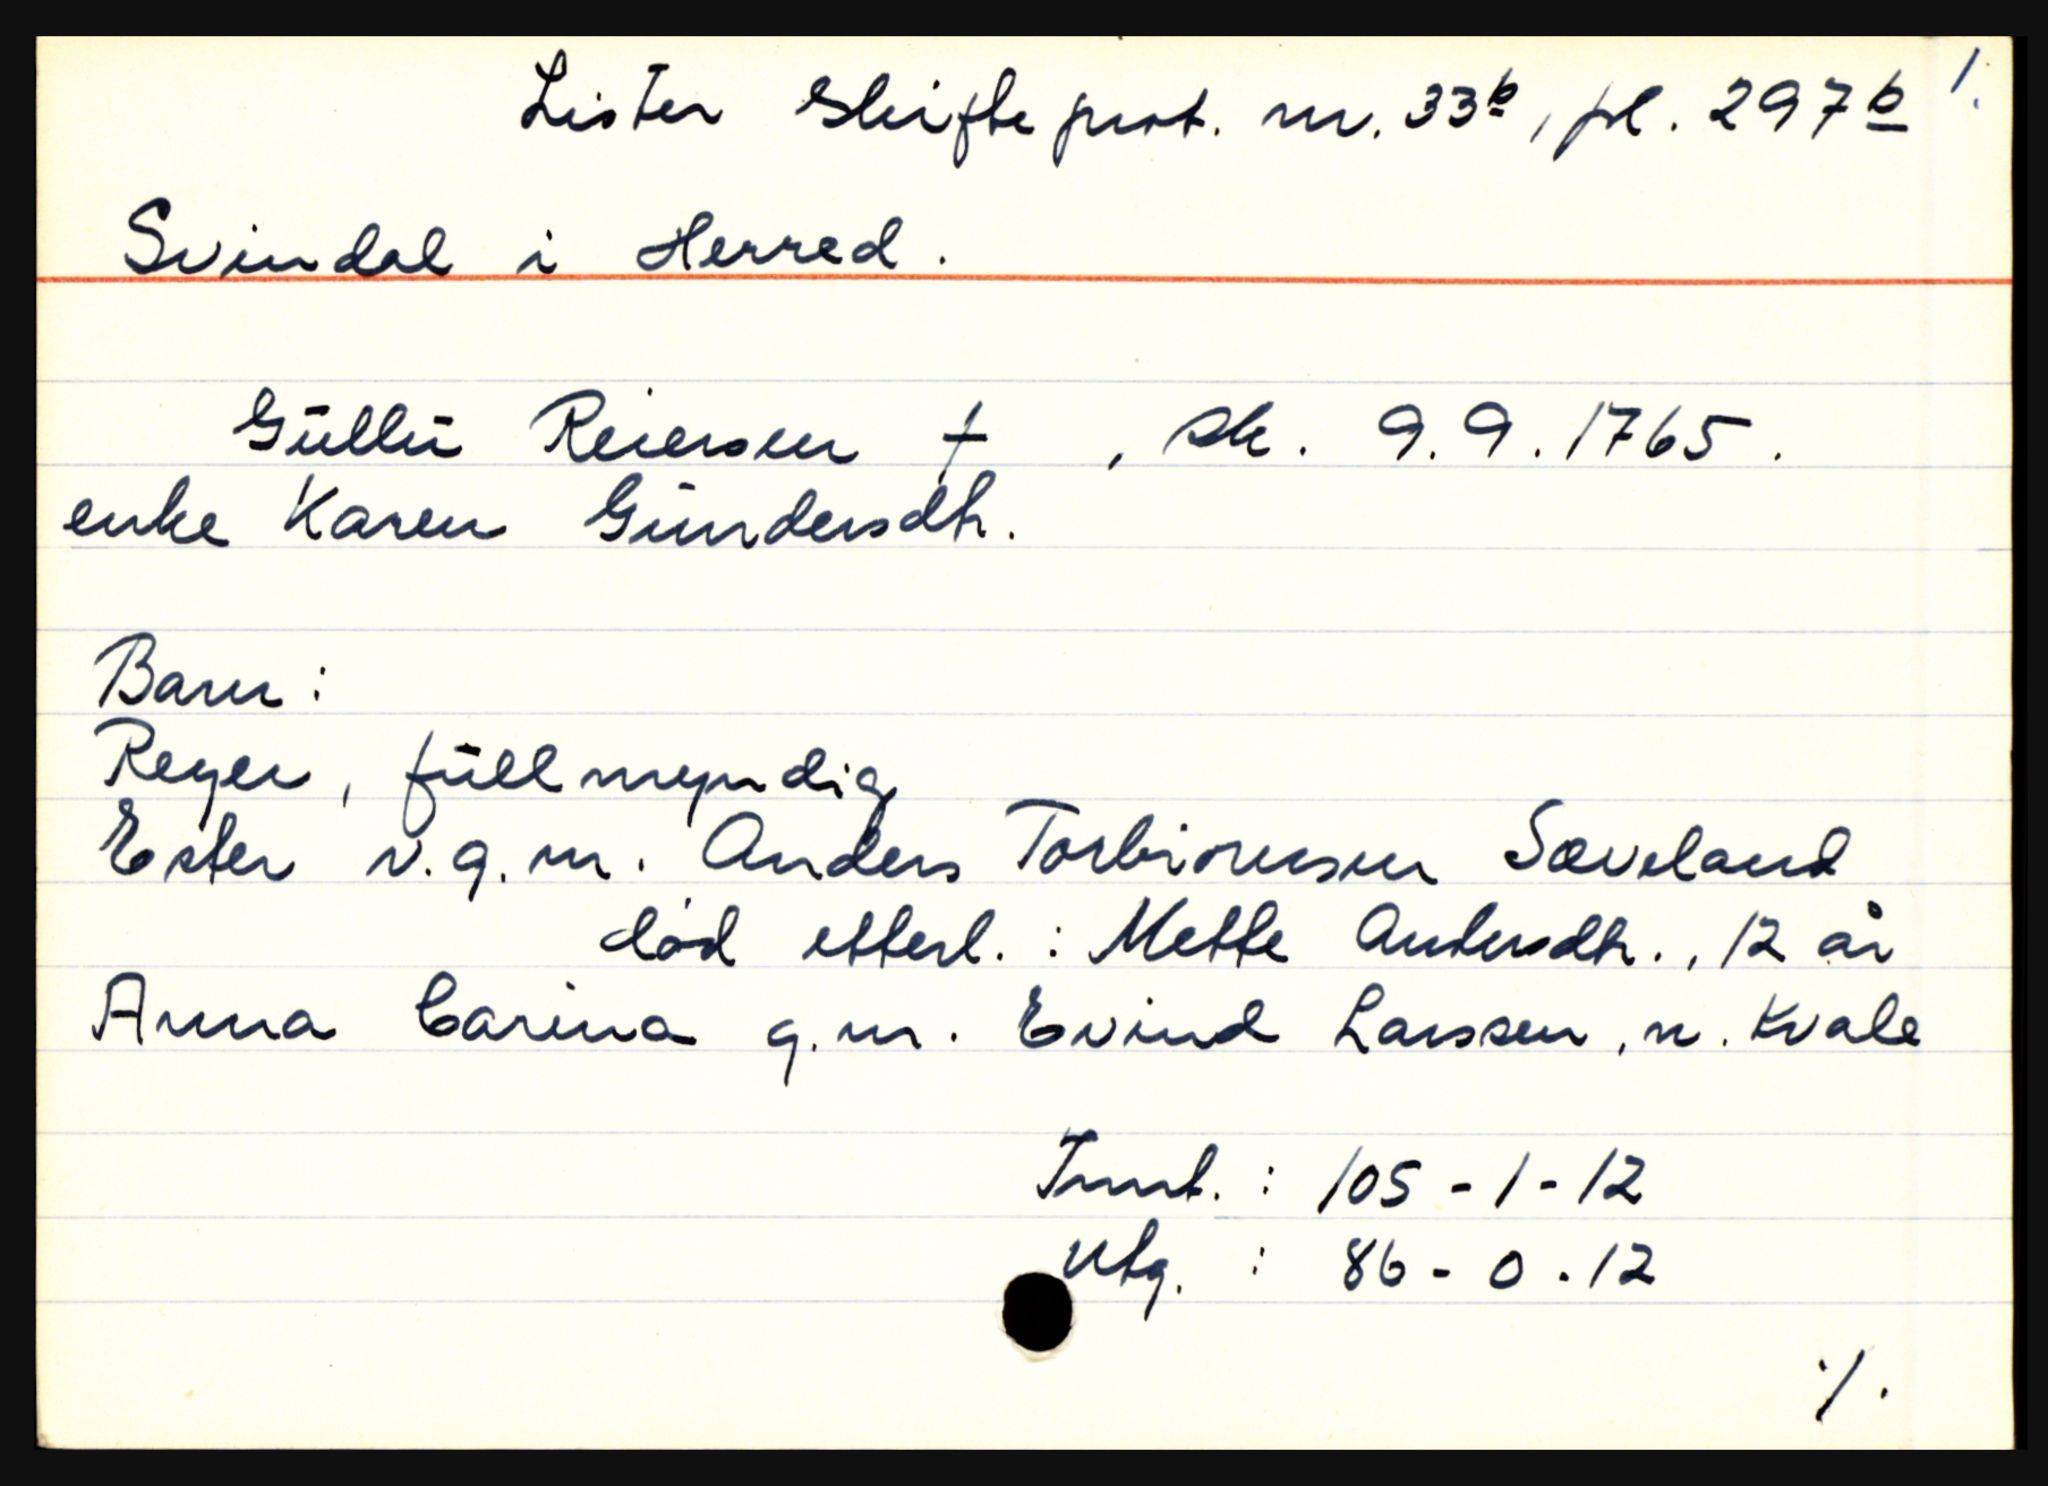 Lister Skifteprot. nr. 33b, pl. 297b 1.
Svindal i Herred.
Gūllū Reiersen †, sk. 9.9.1765.
enke Karen Gūndersdtr.
Barn:
Reyer, fūllmyndig
Ester v.g.m. Anders Torbiornsen Sæveland
død etterl.: Mette Andersdtr., 12 år
Anna Carina g.m. Evind Larssen, n. Kvale
Innt. : 105-1-12
Utg. : 86-0-12
./.